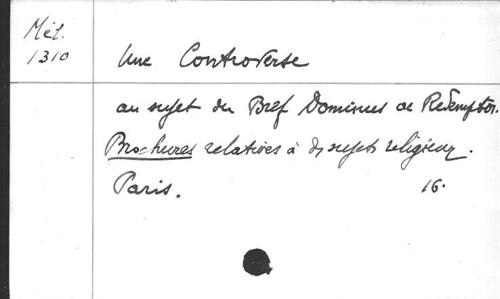 Mél.
1310
Une Controverse
au sujet du Bref Dominus ac Redemptor.
Brochures relatives à d. sujets religieux.
Paris.
16.